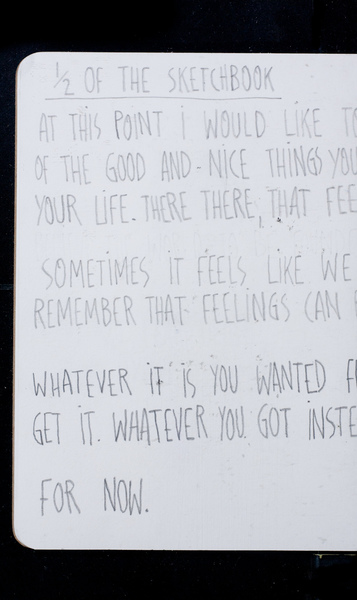 1/2 OF THE SKETCHBOOK
AT THIS POINT i WOULD LIKE
OF THE GOOD AND-NICE THINGS YOU
YOUR LIFE. THERE THERE, THAT FEE
SOMETIMES IT FEELS LIKE WE
REMEMBER THAT FEELINGS CAN
WHATEVER IT IS YOU WANTED
GET IT. WHATEVER YOU GOT INSTE
FOR NOW.